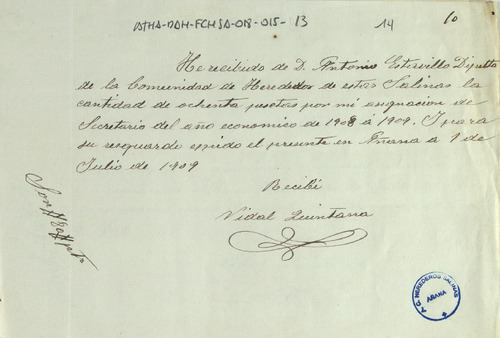 ATHA-DAH-FCHSA-018-015-13
14
10
He recibido de D. Antonio Estervillo Diputto
de la Comunidad de Herededor de estas Salinas la
cantidad de ochenta pesetas por mi asignacion de
Secretario del año economico de 1908 á 1909. I para
su resguardo espido el presente en Añana a 1 de
Julio de 1909
Recibí
Vidal Quintana
Son #80# pts
A. G. HEREDEROS SALINAS
AÑANA